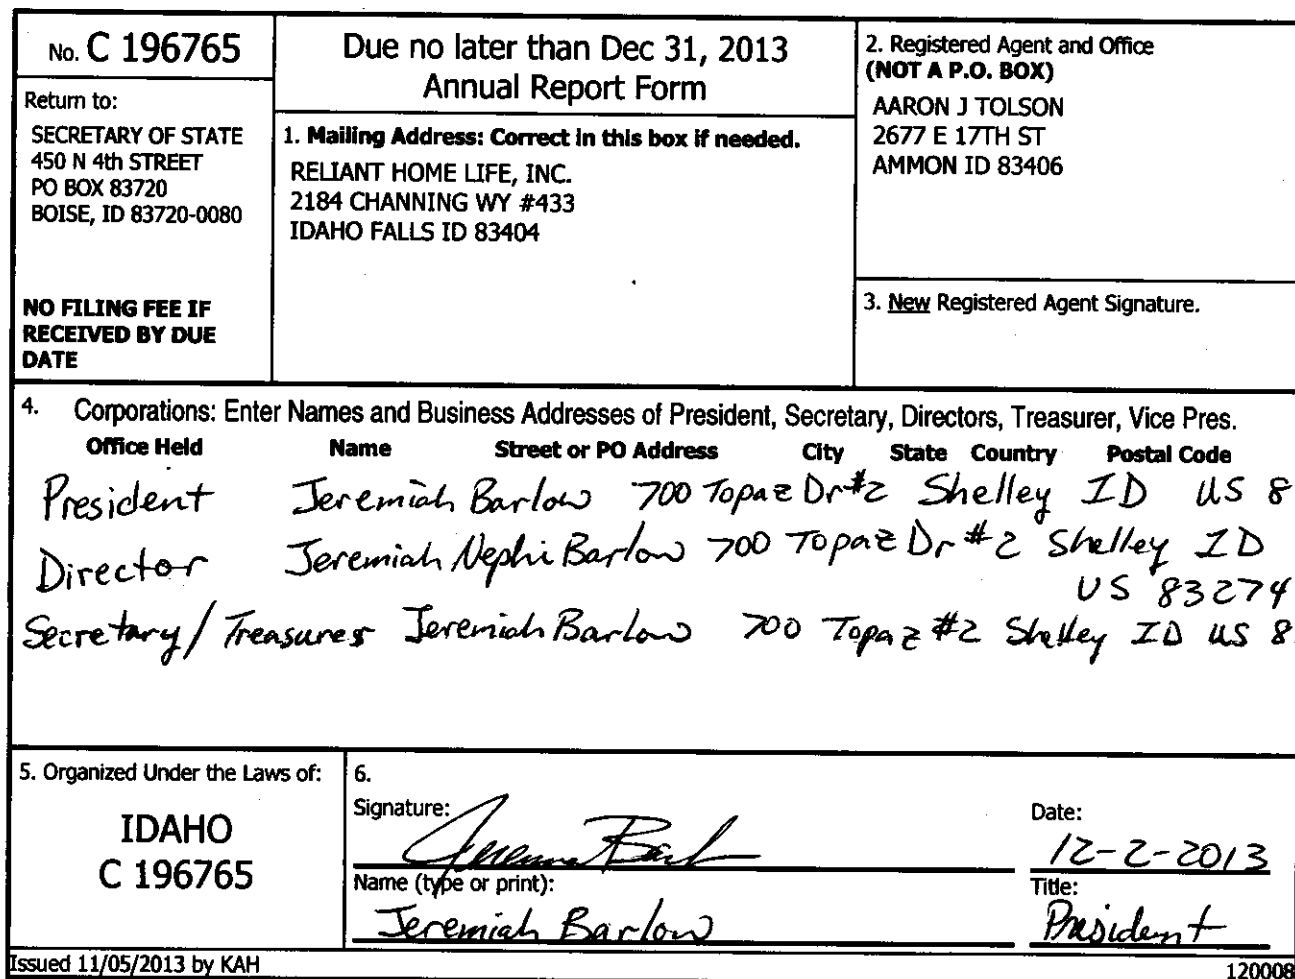 No. C 196765
Return to:
SECRETARY OF STATE
450 N 4th STREET
PO BOX 83720
BOISE, ID 83720-0080
NO FILING FEE IF
RECEIVED BY DUE
DATE
Due no later than Dec 31, 2013
Annual Report Form
1. Mailing Address: Correct in this box if needed.
RELIANT HOME LIFE, INC.
2184 CHANNING WY #433
IDAHO FALLS ID 83404
2. Registered Agent and Office
(NOT A P.O. BOX)
AARON J TOLSON
2677 E 17TH ST
AMMON ID 83406
3. New Registered Agent Signature.
4. Corporations: Enter Names and Business Addresses of President, Secretary, Directors, Treasurer, Vice Pres.
Office Held Name Street or PO Address City State Country Postal Code
President Jeremiah Barlow 700 Topaz Dr #2 Shelley ID US 8
Director Jeremiah Nephi Barlow 700 Topaz Dr #2 Shelley ID
US 83274
Secretary/Treasurer Jeremiah Barlow 700 Topaz #2 Shelley ID US 8
5. Organized Under the Laws of:
IDAHO
C 196765
6.
Signature:
Date:
12-2-2013
Name (type or print):
Jeremiah Barlow
Title:
President
Issued 11/05/2013 by KAH
120008